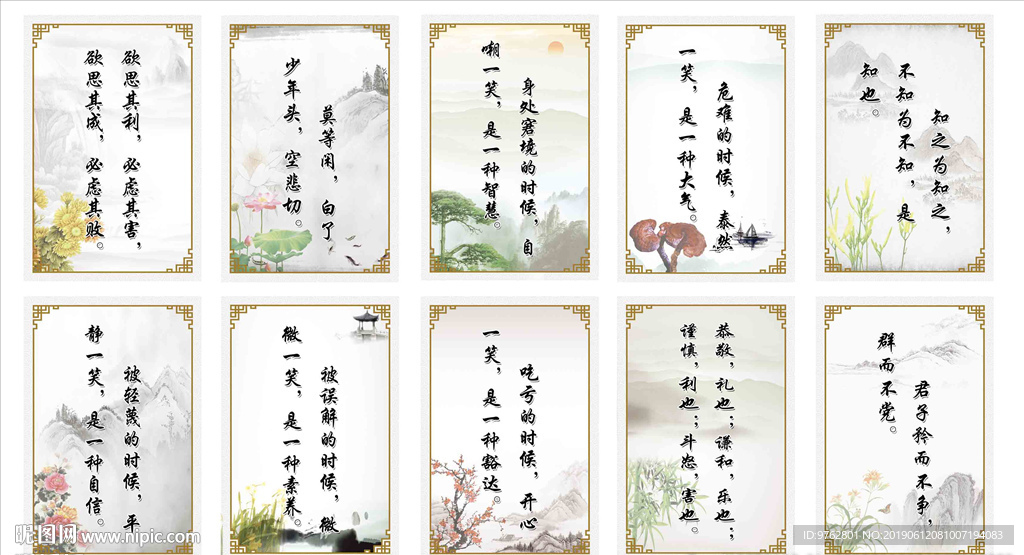 欲思其利，必虑其害，
欲思其成，必虑其败。
莫等闲，白了
少年头，空悲切。
身处窘境的时候，自
嘲一笑，是一种智慧。
危难的时候，泰然
一笑，是一种大气。
知之为知之，
不知为不知，是
知也。
被轻蔑的时候，平
静一笑，是一种自信。
被误解的时候，微
微一笑，是一种素养。
吃亏的时候，开心
一笑，是一种豁达。
恭敬，礼也；谦和，乐也；
谨慎，利也；斗怒，害也。
君子矜而不争，
群而不党。
昵图网 www.nipic.com
ID:9762801 NO:20190612081007194083